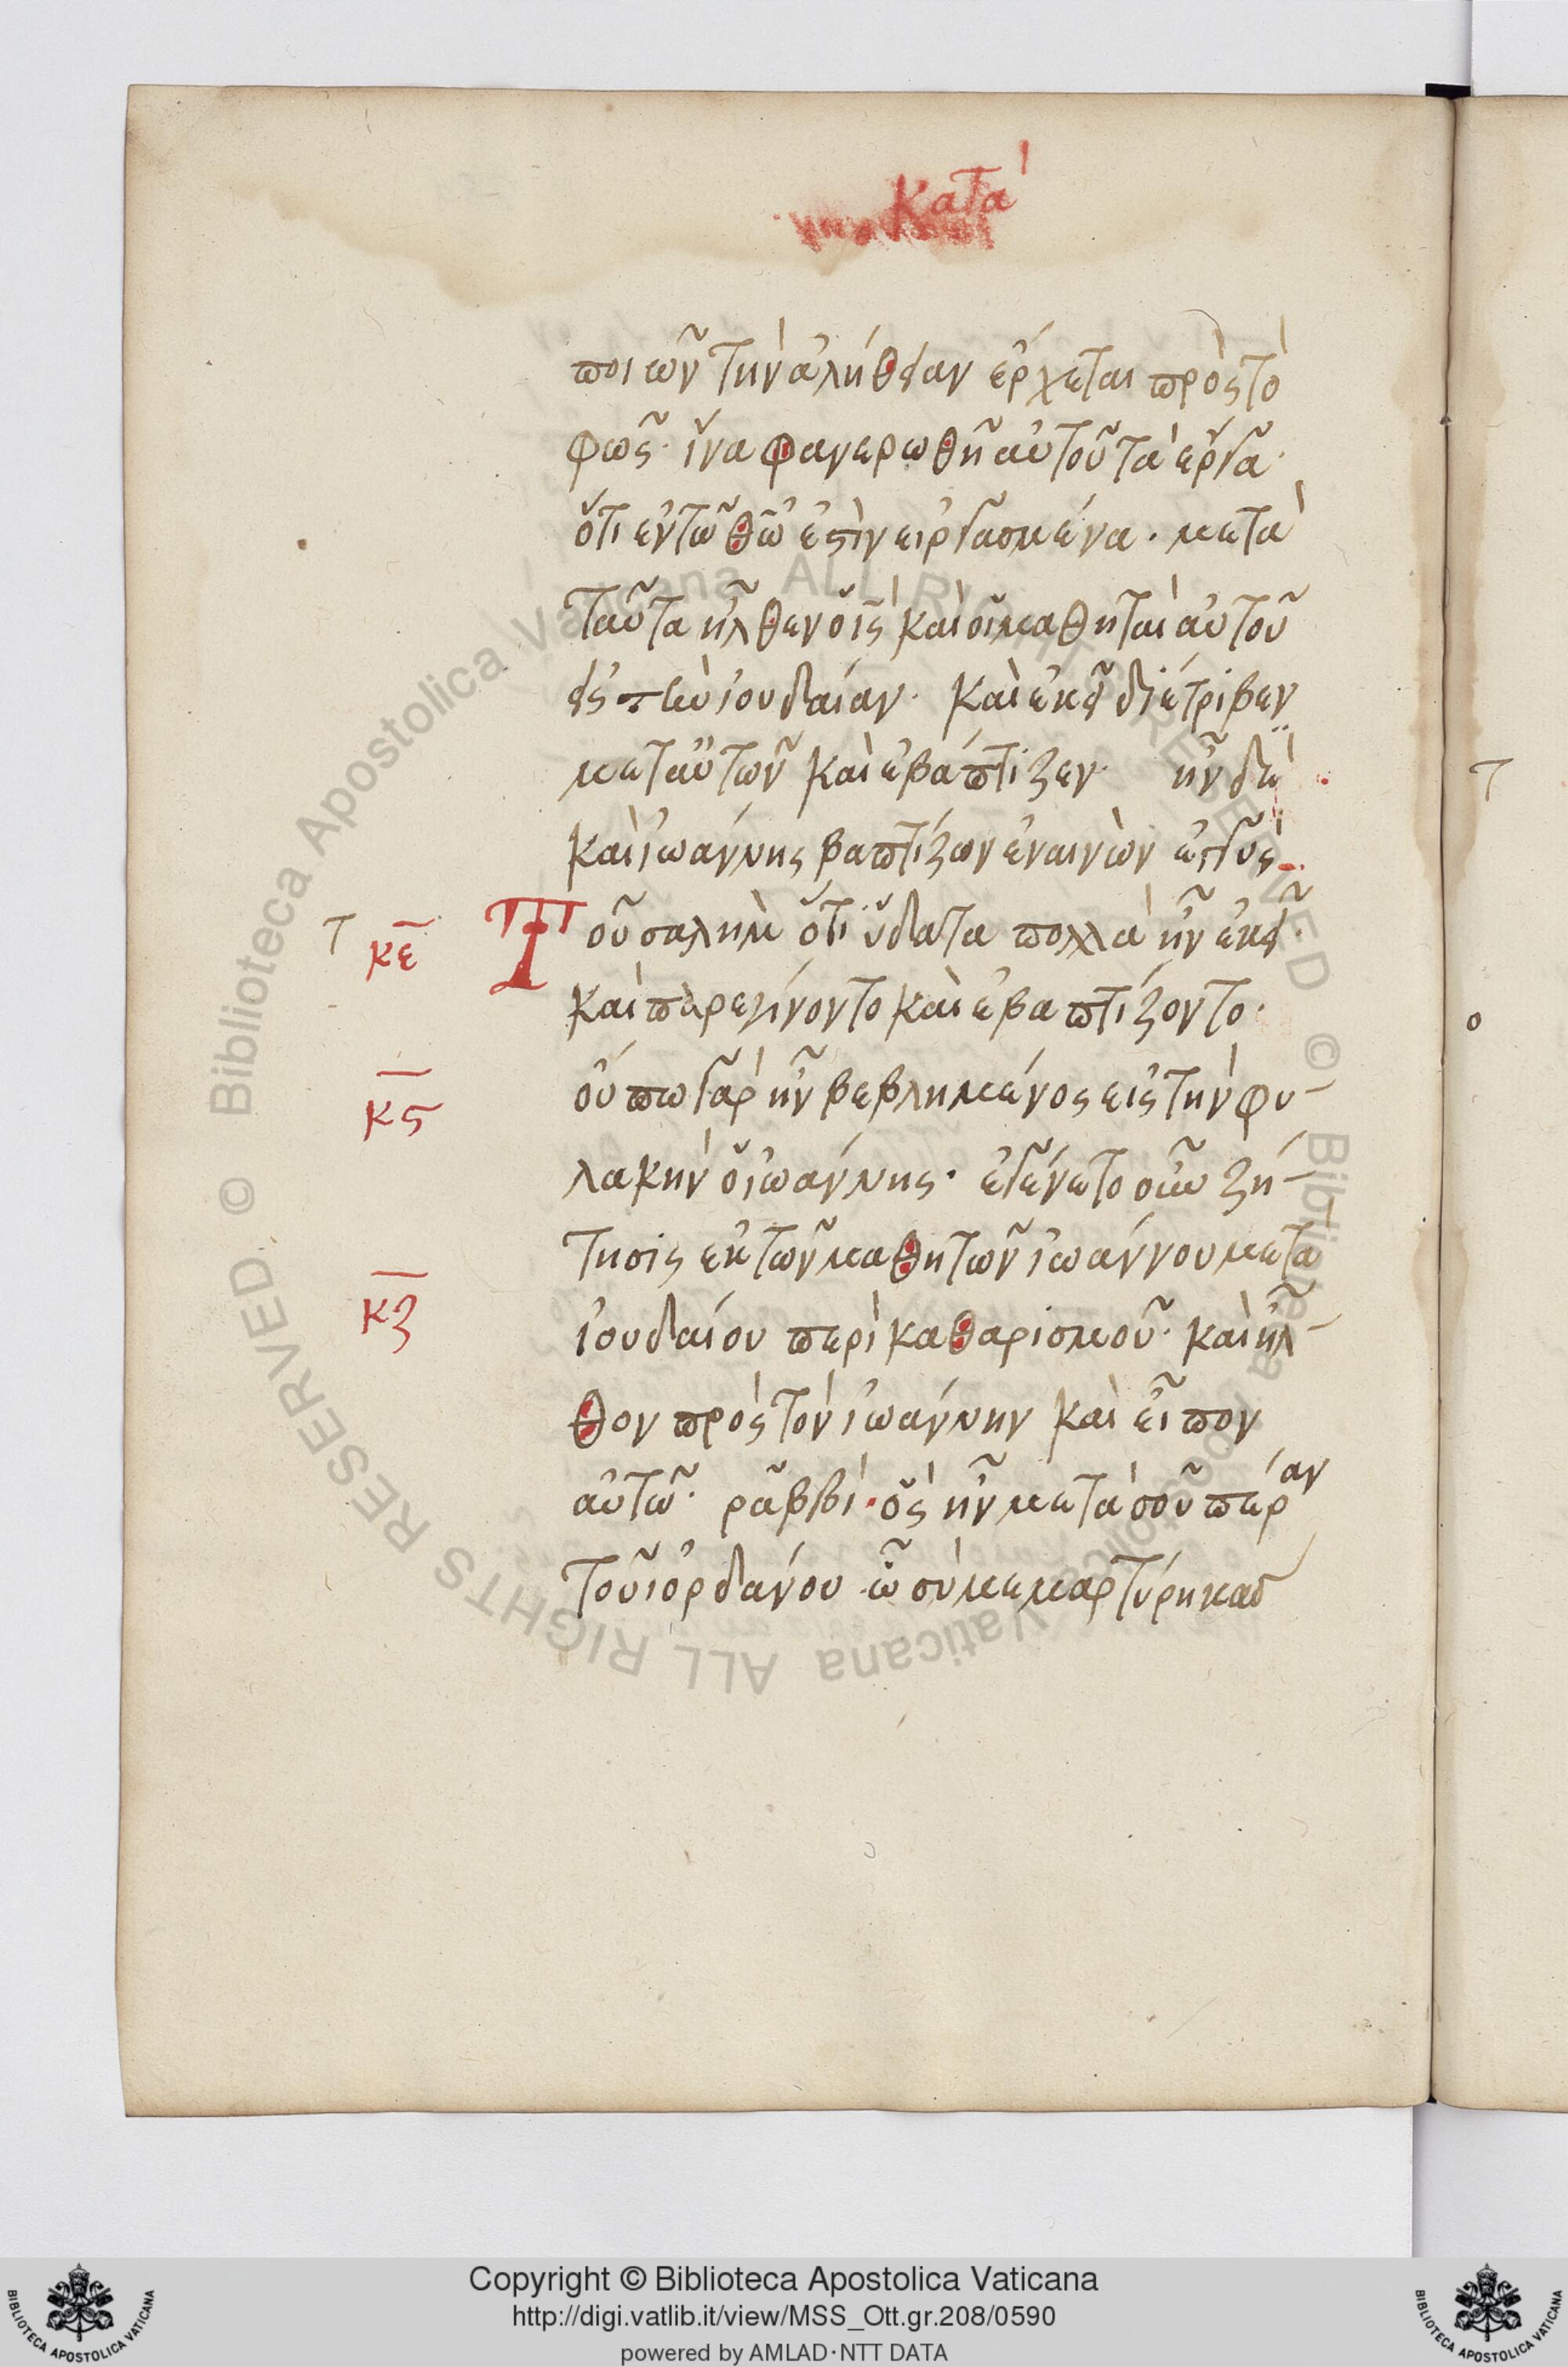 Κατὰ
ποιῶν τὴν ἀλήθειαν ἔρχεται πρὸς τὸ
φῶς· ἵνα φανερωθῆ αὐτοῦ τὰ ἔργα·
ὅτι ἐν τῶ θω ἐστὶν εἰργασμένα· μετὰ
ταῦτα ἦλθεν ὁ ις καὶ οἱ μαθηταὶ αὐτοῦ
εἰς τὴν ἰουδαίαν· καὶ ἐκεῖ διέτριβεν
μετ αὐτῶν καὶ ἐβάπτιζεν· ἦν δὲ
καὶ ἰωάννης βαπτίζων ἐν αἰνὼν ἐγγὺς
Τοῦ σαλὴμ ὅτι ὕδατα πολλὰ ἦν ἐκεῖ·
καὶ παρεγίνοντο καὶ ἐβαπτίζοντο·
οὔπω γὰρ ἦν βεβλημένος εἰς τὴν φυ-
λακὴν ὁ ἰωάννης· ἐγένετο οὖν ζή-
τησις ἐκ τῶν μαθητῶν ἰωάννου μετα
ἰουδαίου περὶ καθαρισμοῦ· καὶ ἦλ-
θον πρὸς τὸν ἰωάννην καὶ εἶπον
αὐτῶ· ῥαββὶ· ὃς ἦν μετὰ σοῦ πέραν
τοῦ ἰορδάνου ὧ σὺ μεμαρτύρηκας
τ
κε
κς
κζ
τ
ο
© Biblioteca Apostolica Vaticana ALL RIGHTS RESERVED © Biblioteca Apostolica Vaticana ALL RIGHTS RESERVED
Copyright © Biblioteca Apostolica Vaticana
http://digi.vatlib.it/view/MSS_Ott.gr.208/0590
powered by AMLAD·NTT DATA
BIBLIOTECA APOSTOLICA VATICANA
BIBLIOTECA APOSTOLICA VATICANA